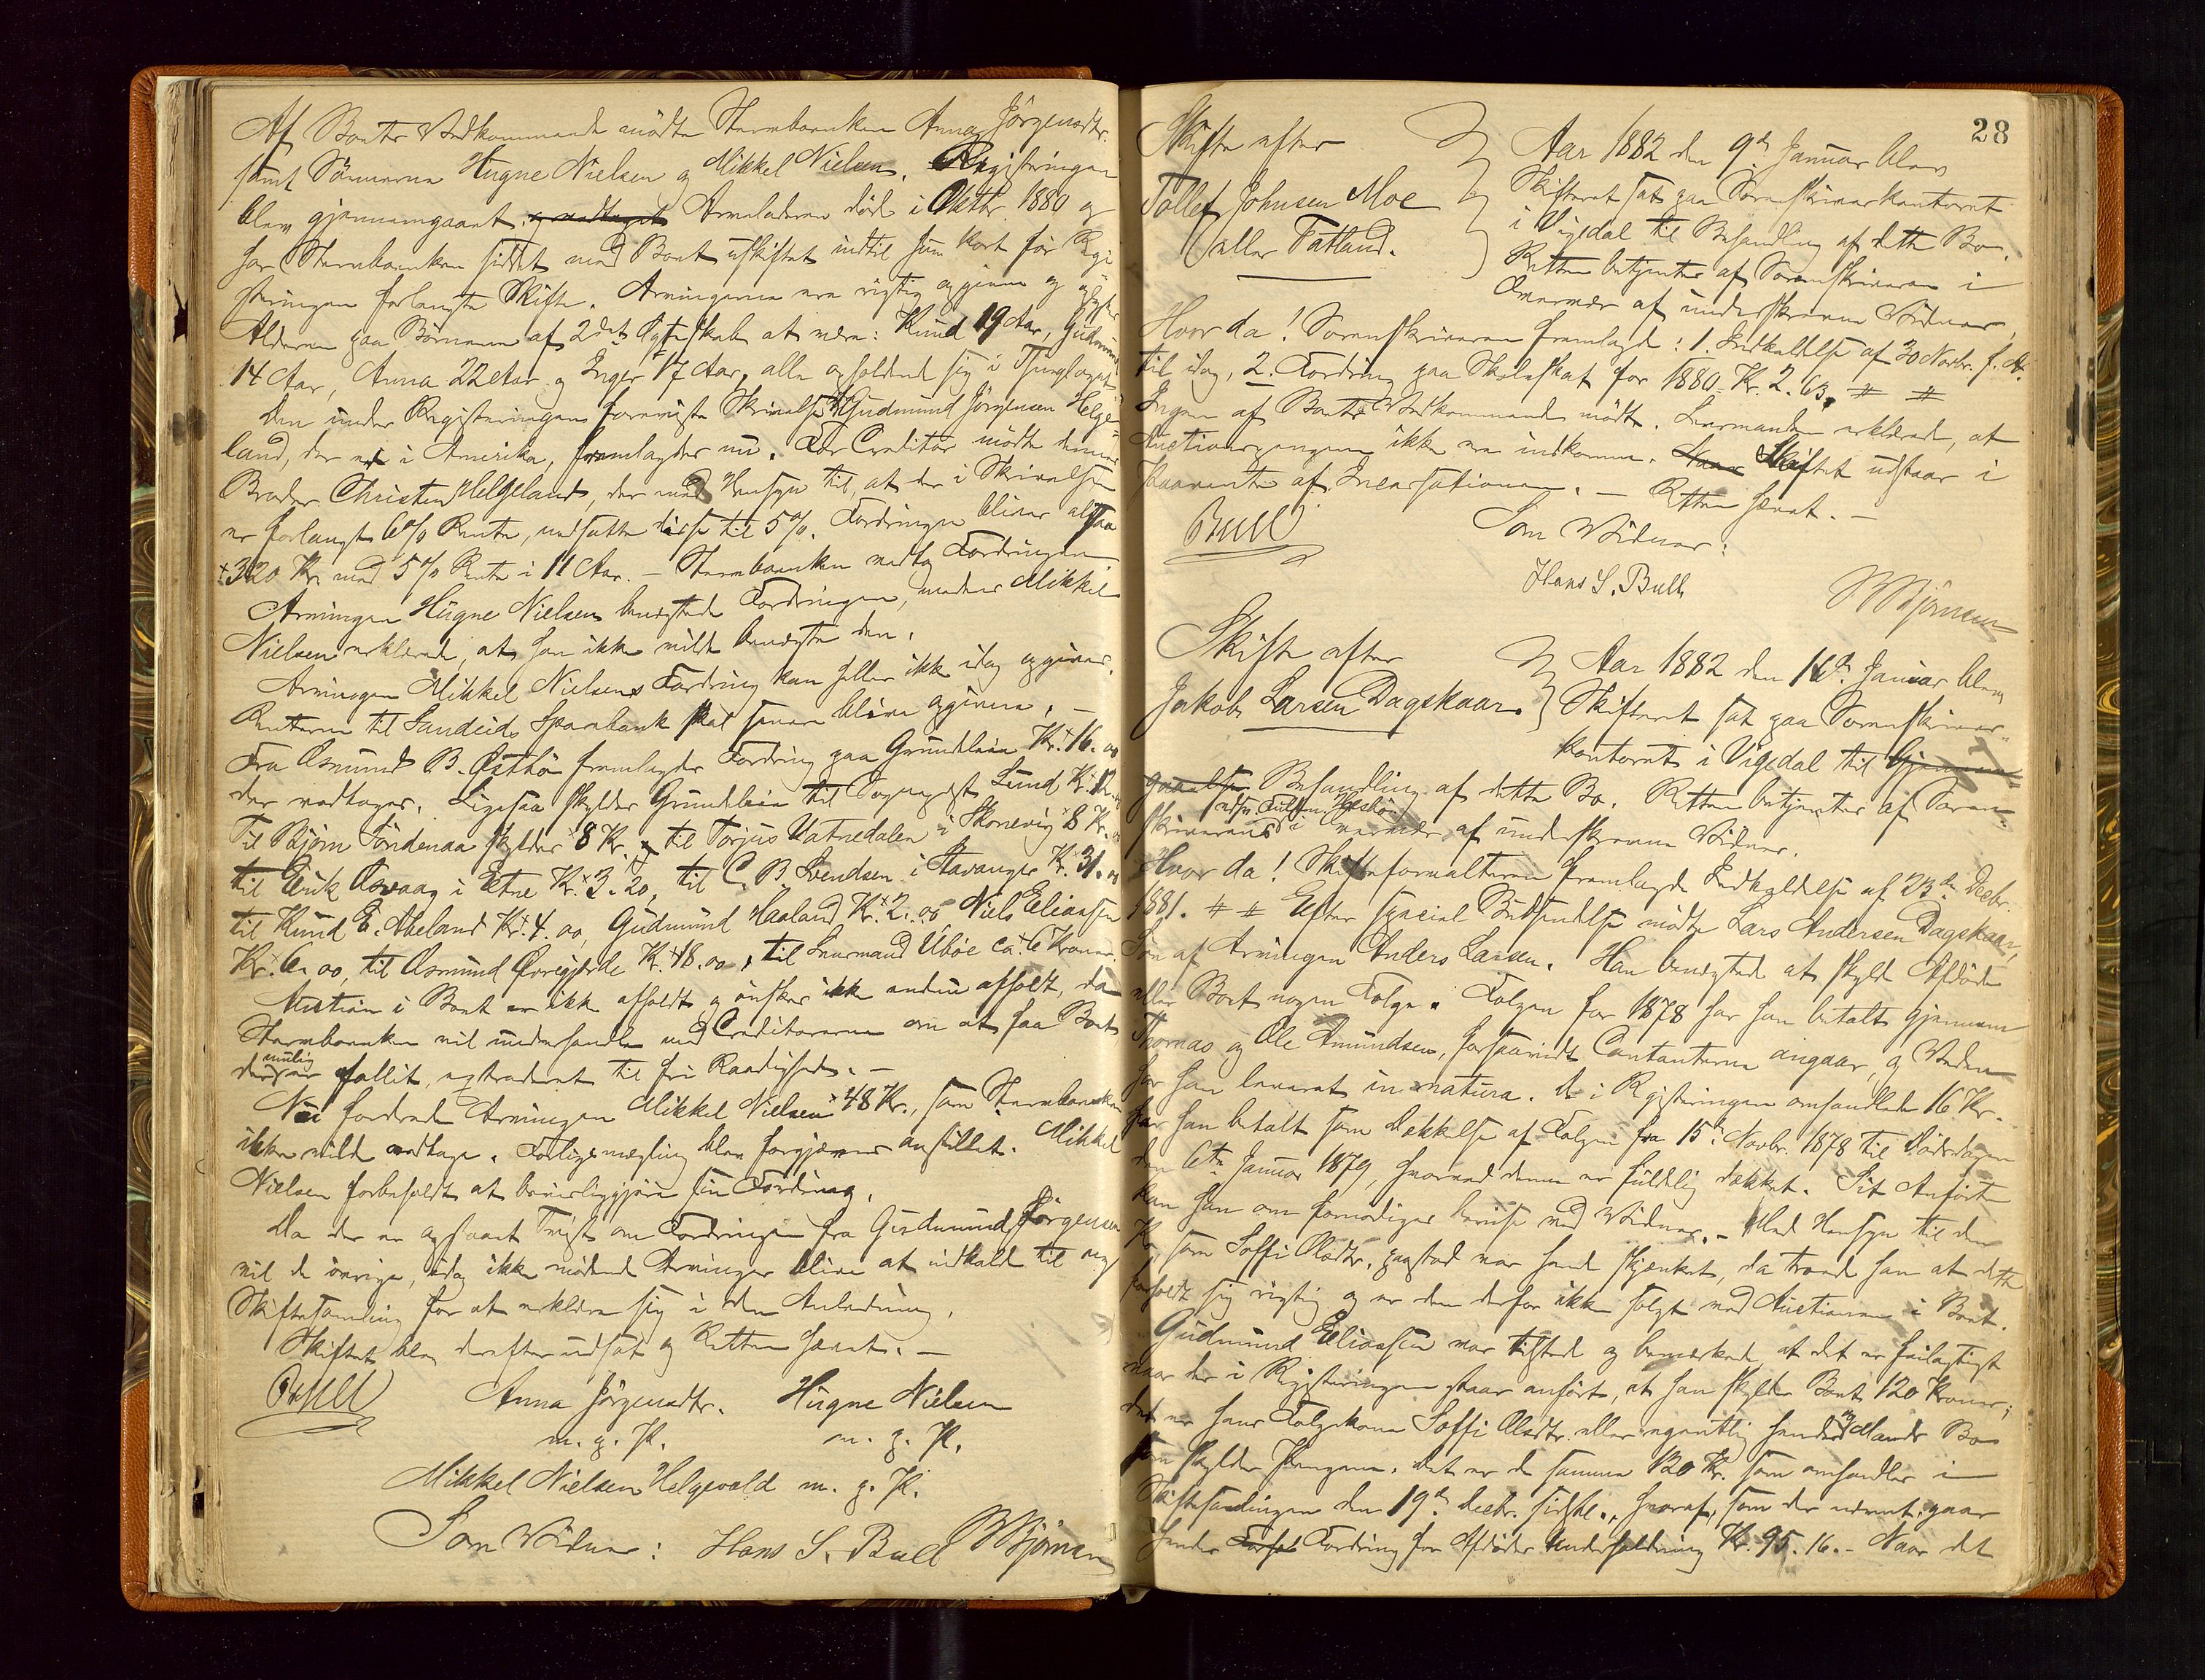 Af Boets Vedkommende mødte Stervboenken Anna Jørgensdtr.
samt Sønnerne Hugne Nielsen og Mikkel Nielsen. Registringen
blev gjennemgaaet og vedtaget Arveladeren døde i Oktbr. 1880 og
har Stervboenken siddet med Boet uskiftet indtil hun kort før Regi
streringen forlangte Skifte. Arvingerne ere rigtig opgivne og oplystes
Alderen paa Børnene af 2det Ægteskab at være: Knud 19 Aar, Gudmund
14 Aar, Anna 22 Aar og Inger 17 Aar, alle opholdende sig i Thinglaget
Den under Registeringen foreviste Skrivelse fra Gudmund Jørgensen Helge-
land, der er i Amerika, fremlagdes nu. For Creditor mødte dennes
Broder Christen Helgeland, der med Hensyn til, at der i Skrivelsen
er forlangt 6% Rente, nedsatte disse til 5%. Fordringen bliver altsaa
320 Kr. med 5% Rente i 11 Aar. – Stervboenken vedtog Fordringen
Arvingen Hugne Nielsen benegtede Fordringen, medens Mikkel
Nielsen erklærede, at han ikke vilde benegte den.
Arvingen Mikkel Nielsens Fordring kan heller ikke idag opgives.
Renterne til Sandeids Sparebank skal senere blive opgivne. –
Fra Osmund B. Østbø fremlagdes Fordring paa Grundleie Kr. 16.00
der vedtages. Ligesaa skyldes Grundleie til Sogneprest Lund Kr. 12.00
Til Bjørn Tøndenaa skyldes 8 Kr. til Torjus Vatnedalen i Skonevig 8 Kr.
til Erik Osvaag i Etne Kr. 3.20, til C. B. Svendsen i Stavanger Kr. 31.00
til Knud E. Abeland Kr. 4.00, Gudmund Haaland Kr. 2.00 Niels Eliassen
Kr. 6.00, til Osmund Øvregjerde Kr. 18.00, til Lensmand Ubøe ca 6 Kroner
Auktion i Boet er ikke afholdt og ønskes ikke endnu afholdt, da
Stervboenken vil underhandle med Creditorerne om at faa Boet
der mulig er fallit, extraderet til fri Raadighed. –
Nu fordrede Arvingen Mikkel Nielsen 48 Kr., som Stervboenken
ikke vilde vedtage. Forligsmægling blev forgjæves anstillet. Mikkel
Nielsen forbeholdt at bevisliggjøre sin Fordring.
Da der er opstaaet Tvist om Fordringen fra Gudmund Jørgensen
vil de øvrige, idag ikke mødende Arvinger blive at indkalde til ny
Skiftesamling for at erklære sig i den Anledning.
Skiftet blev derefter udsat og Retten hævet. –
Bull Anna Jørgensdtr. Hugne Nielsen
m. p. P. m. p. P.
Mikkel Nielsen Helgevold m. p. P.
Som Vidner: Hans S. Bull Bjørnsen
28
Skifte efter
Tollef Johnsen Moe
eller Tatland.
Aar 1882 den 9de Januar blev
Skifteret sat paa Sorenskriverkontoret
i Vigedal til Behandling af dette Bo.
Retten betjentes af Sorenskriveren i
Overvær af underskrevne Vidner.
Hvor da! Sorenskriveren fremlagde: 1. Indkaldelse af 30 Novbr. f. A.
til idag, 2. Fordring paa Skoleskat for 1880 Kr. 2.63. # #
Ingen af Boets Vedkommende mødte. Lensmanden erklærede, at
Auktionspengene ikke ere indkomne. Skiftet udstaar i
Paavente af Incassationen. – Retten hævet. –
Bull Som Vidner:
Hans S. Bull
Bjørnsen
Skifte efter
Jakob Larsen Dagskaar.
Aar 1882 den 14de Januar blev
Skifteret sat paa Sorenskriver-
kontoret i Vigedal til
Behandling af dette Bo. Retten betjentes af Soren-
skriverens i Overvær af underskrevne Vidner.
Hvor da! Skifteforvalteren fremlagde Indkaldelse af 23de Decbr.
1881. # # Efter special Budsendelse mødte Lars Andersen Dagskaar,
Søn af Arvingen Anders Larsen. Han benegtede at skylde Afdøde
eller Boet nogen Folge. Folgen for 1878 har han betalt gjennem
Thomas og Ole Amundsen, forsaavidt Contanterne angaar, og Veden
har han leveret in natura. De i Registeringen omhandlede 16 Kr.
har han betalt som Dækkelse af Folgen fra 15de Novbr. 1878 til Dødsdagen
den 6te Januar 1879, hvorved denne er fuldelig dækket. Sit Anførte
kan han om fornødiges bevise med Vidner. – Med Hensyn til den
Ko, som Soffi Olsdtr. paastod var hende skjænket, da troede han at dette
forholdt sig rigtig og er den derfor ikke solgt ved Auktionen i Boet.
Gudmund Eliassen var tilstede og bemærkede, at det er feilagtigt
naar der i Registeringen staar anført, at han skylder Boet 120 Kroner;
det er hans Folgekone Soffi Olsdtr. eller egentlig hendes Mands Bo
som skylder Pengene. Det er de samme 120 Kr. som omhandles i
Skiftesamlingen den 19de Decbr. sidstl., hvoraf, som der nævnt, gaar
hendes Fordring for Afdødes Underholdning Kr. 95.16. – Naar det